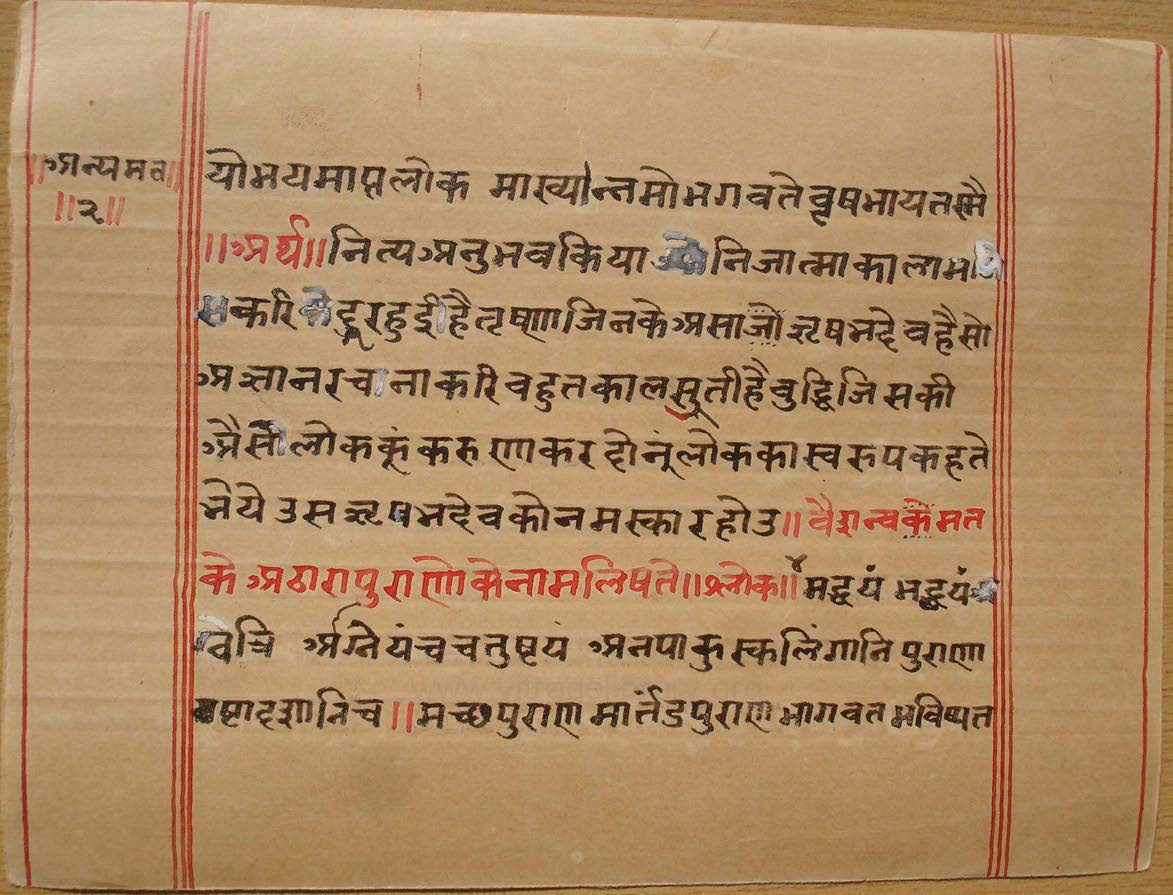 ॥अन्यमत॥
॥२॥
योभयमाप्तलोक माख्यान्नमोभगवतेवृषभायतस्मै
॥अर्थ॥नित्यअनुभवकिया निजात्माकालाभ
करि दूरहुईहैतृष्णाजिनकेअसाजोऋषभदेवहैसो
अज्ञानरचानाकरिबहुतकालसुतीहैबुद्धिजिसकी
अैसोलोककूंकरुणाकरहोनूंलोककास्वरूपकहते
भेयेउसऋषभदेवकोनमस्कारहोउ॥वैशन्वकेमत
केअठारापुराणोकेनामलिषते॥श्लोक॥४मद्वयंभद्वयं
अग्नेयंचचतुष्टयं अनपाकुस्कलिंगानिपुराणा
ष्टादशानिच॥मच्छपुराणमार्तंडपुराणभागवतभविष्यत